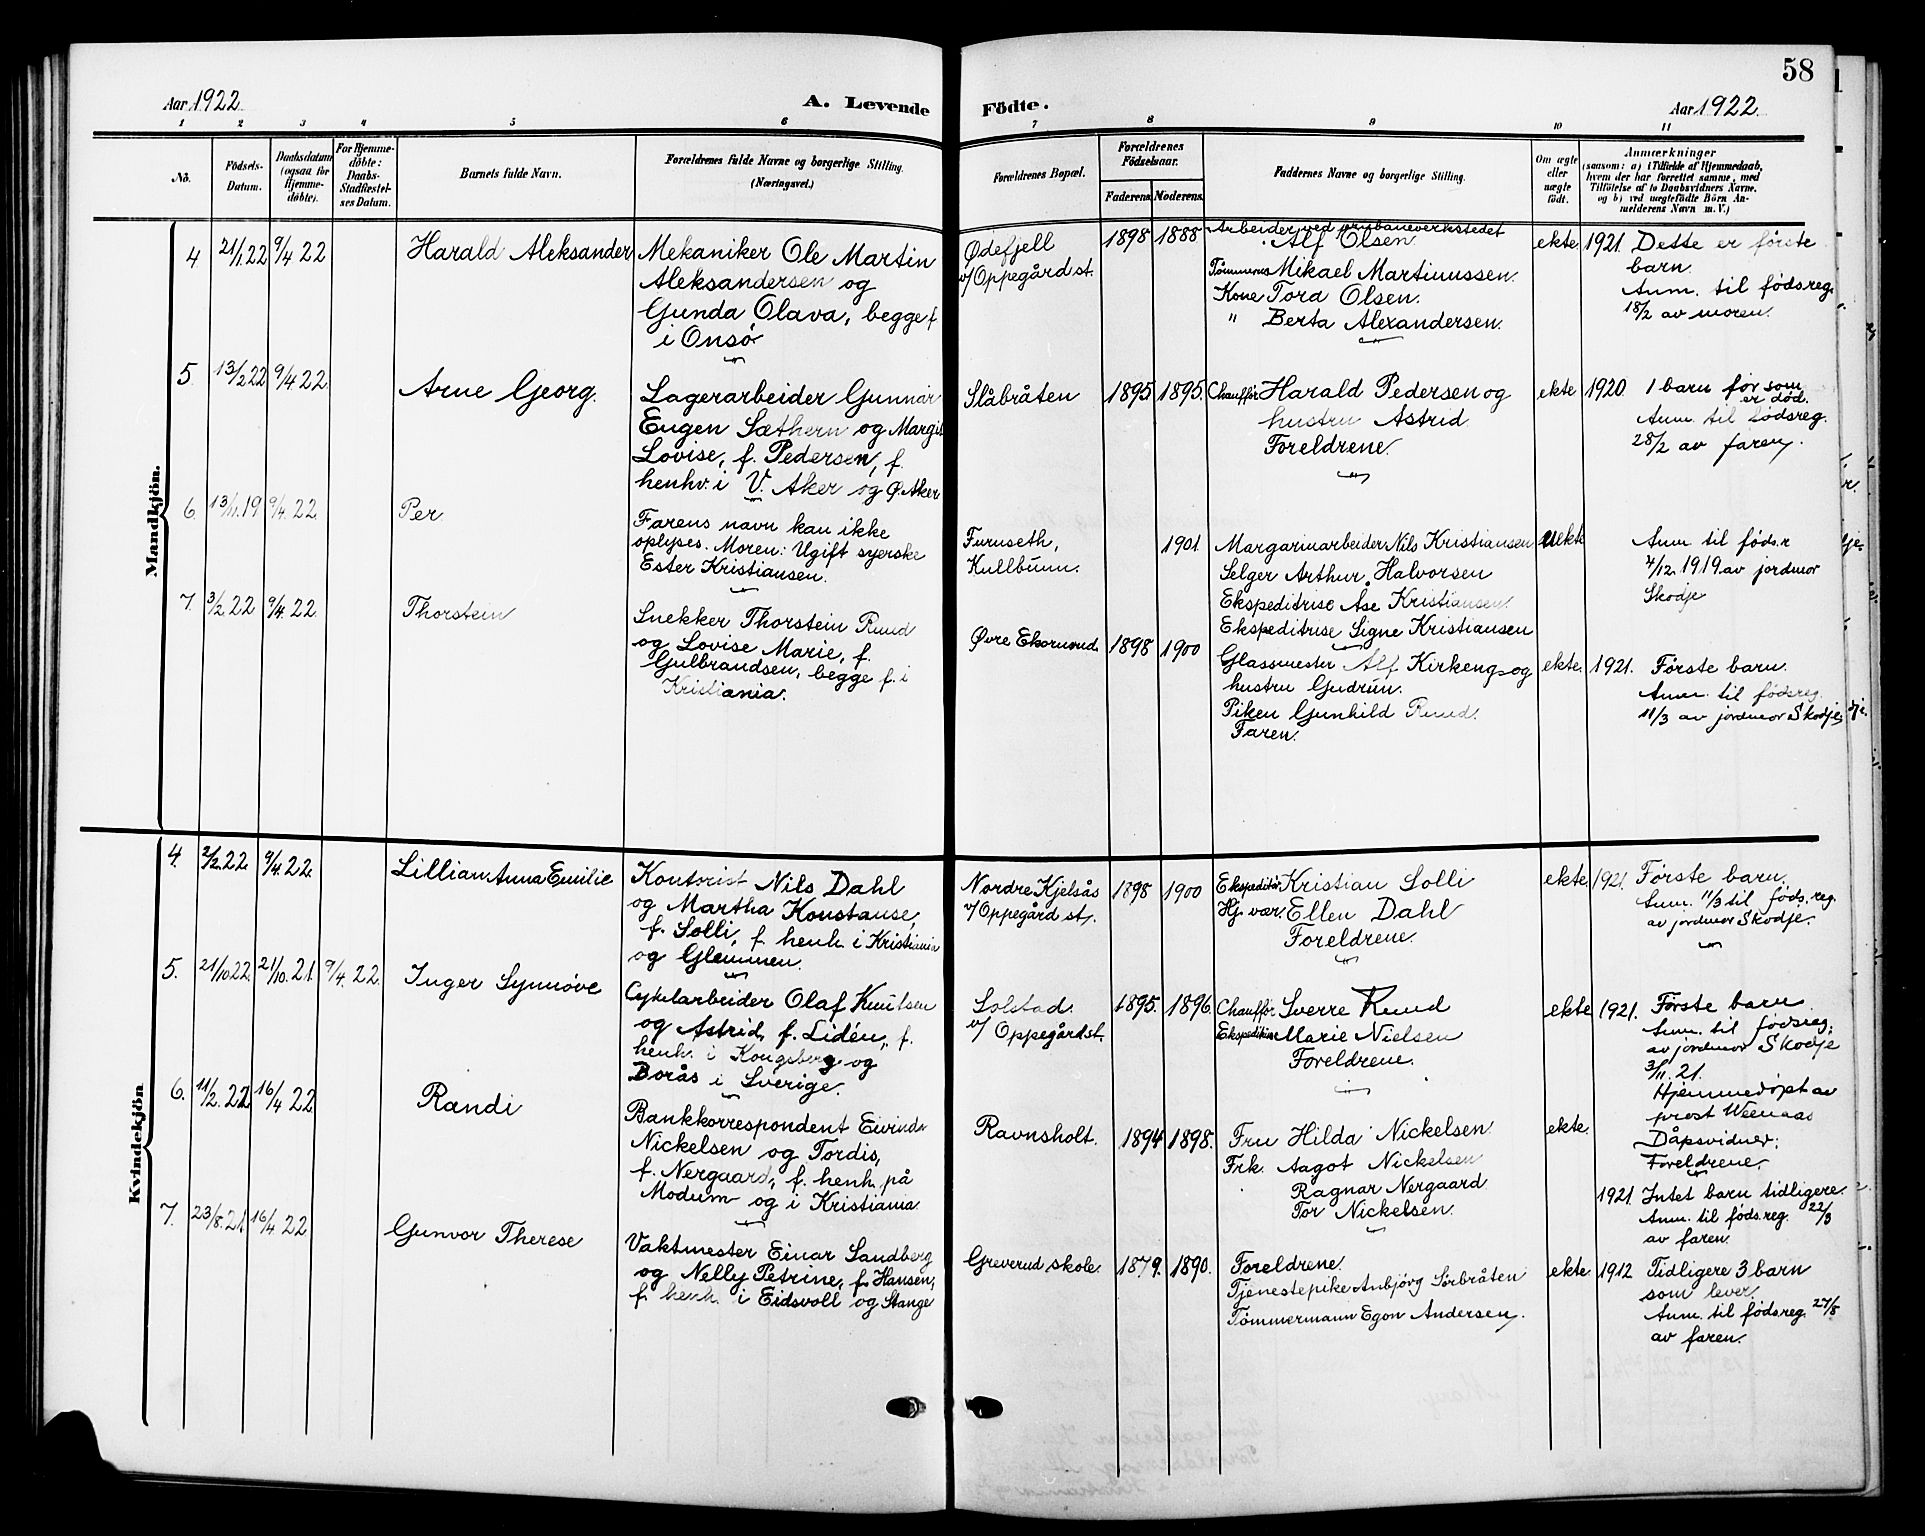 58
Aar 1922
A. Levende
Födte.
Aar 1922
1 2 3 4 5 6 7 8 9 10 11
No.
Födsels-
Datum.
Daabsdatum
(ogsaa for
Hjemme-
döbte).
For Hjemme-
döbte:
Daabs-
Stadfæstel-
ses Datum.
Barnets fulde Navn.
Forældrenes fulde Navne og borgerlige Stilling.
(Næringsvei.)
Forældrenes Bopæl.
Forældrenes
Födselsaar.
Faderens Moderens
Faddernes Navne og borgerlige Stilling.
Om ægte
eller
uægte
født.
Anmærkninger
(saasom: a) i Tilfælde af Hjemmedaab,
hvem der har forrettet samme, med
Tilföielse af to Daabsvidners Navne,
og b) ved uægtefødte Börn An-
melderens Navn m. V.)
Mandkjön.
4 21/1 22 9/4 22 Harald Aleksander
Mekaniker Ole Martin
Aleksandersen og
Gunda Olava, begge f.
i Onsø
Ødefjell
v/Oppegård st.
1898 1888
Arbeider ved prisbaneverkstedet
Alf Olsen
Mikael Martinussen.
Kone Tora Olsen.
" Berta Alexandersen.
ekte 1921 Dette er første
barn.
Anm. til fødsreg.
18/2 av moren.
5. 13/2 22 9/4 22 Arne Georg.
Lagerarbeider Gunnar
Eugen Sæthern og Margit
Lovise, f. Pedersen, f.
henhv. i V. Aker og Ø. Aker
Slåbråten
1895 1895.
Chauffør Harald Pedersen og
hustru Astrid
Foreldrene.
ekte 1920. 1 barn før som
er død.
Anm. til fødsreg.
28/2 av faren.
6. 13/11.19 9/4.22. Per
Farens navn kan ikke
oplyses. Moren: Ugift syerske
Ester Kristiansen.
Furuseth,
Kullbunn.
1901
Margarinarbeider Nils Kristiansen
Selger Arthur Halvorsen
Ekspeditrise Åse Kristiansen
Ekspeditrise Signe Kristiansen
uekte
Anm til føds.r
4/12. 1919. av jordmor
Skodje
7. 3/2 22 9/4.22. Thorstein
Snekker Thorstein Ruud
og Lovise Marie, f.
Gulbrandsen, begge f. i
Kristiania.
Øvre Ekornrud.
1898 1900
Glassmester Alf Kirkeng og
hustru Gudrun.
Piken Gunhild Ruud.
Faren.
ekte. 1921. Første barn.
Anm. til fødsreg.
11/3 av jordmor Skodje
Kvindekjön
4. 2/2.22 9/4.22. Lillian Anna Emilie
Kontorist Nils Dahl
og Martha Konstanse,
f. Solli, f. henh. i Kristiania
og Glemmen.
Nordre Kjelsås
v/Oppegård st.
1898 1900
Ekspeditør Kristian Solli
Hj. vær. Ellen Dahl
Foreldrene.
ekte. 1921. Første barn.
Anm. 11/3 til føds.reg.
av jordmor Skodje.
5. 21/10 22. 21/10.21 9/4.22. Inger Synnøve
Cykelarbeider Olaf Knutsen
og Astrid, f. Lidén, f.
henh. i Kongsberg og
Borås i Sverige.
Solstad.
v/ Oppegård st.
1895. 1896.
Chauffør. Sverre Ruud
Ekspeditrise Marie Nielsen
Foreldrene.
ekte 1921. Første barn
Anm. til fødsreg.
av jordmor Skodje
3/11. 21.
Hjemmedøpt av
prost Weenaas
Dåpsvidner:
Foreldrene.
6. 11/2. 22 16/4 22 Randi
Bankkorrespondent Eivind
Nickelsen og Tordis,
f. Nergaard, f. henh. på
Modum og i Kristiania.
Ravnsholt.
1894 1898.
Fru Hilda Nickelsen
Frk. Aagot Nickelsen
Ragnar Nergaard
Tor Nickelsen.
ekte.
1921. Intet barn tidligere.
Anm. til føds.reg. 22/3
av faren.
7. 23/8.21 16/4 22 Gunvor Therese
Vaktmester Einar Sandberg
og Nelly Petrine, f. Hansen,
f. henh. i Eidsvoll og Stange
Greverud skole.
1879. 1890.
Foreldrene.
Tjenestepike Anbjørg Sørbråten
Tømmermann Egon Andersen.
ekte 1912 Tidligere 3 barn
som lever.
Anm. til fødsreg. 27/8
av faren.